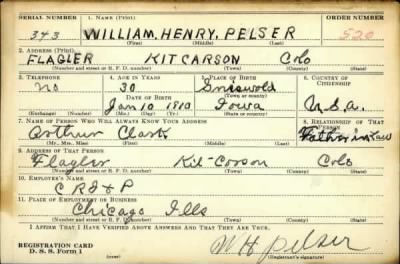 SERIAL NUMBER 1. NAME (Print) ORDER NUMBER
343 WILLIAM, HENRY, PELSER 520
(First) (Middle) (Last)
2. ADDRESS (Print)
FLAGLER KIT CARSON Colo
(Number and street or R. F. D. number) (Town) (County) (State)
3. TELEPHONE 4. AGE IN YEARS 5. PLACE OF BIRTH 6. COUNTRY OF CITIZENSHIP
no 30 Griswold
DATE OF BIRTH (Town or county)
Jan 10 1910 Iowa U.S.a.
(Exchange) (Number) (Mo.) (Day) (Yr.) (State or country)
7. NAME OF PERSON WHO WILL ALWAYS KNOW YOUR ADDRESS 8. RELATIONSHIP OF THAT PERSON
Arthur Clark Father in Law
(Mr., Mrs., Miss) (First) (Middle) (Last)
9. ADDRESS OF THAT PERSON
Flagler Kit-Corson Colo
(Number and street or R. F. D. number) (Town) (County) (State)
10. EMPLOYER'S NAME
C R I & P
11. PLACE OF EMPLOYMENT OR BUSINESS
Chicago Ills
(Number and street or R. F. D. number) (Town) (County) (State)
I AFFIRM THAT I HAVE VERIFIED ABOVE ANSWERS AND THAT THEY ARE TRUE.
REGISTRATION CARD
D. S. S. Form 1 WH Pelser
(Registrant's signature)